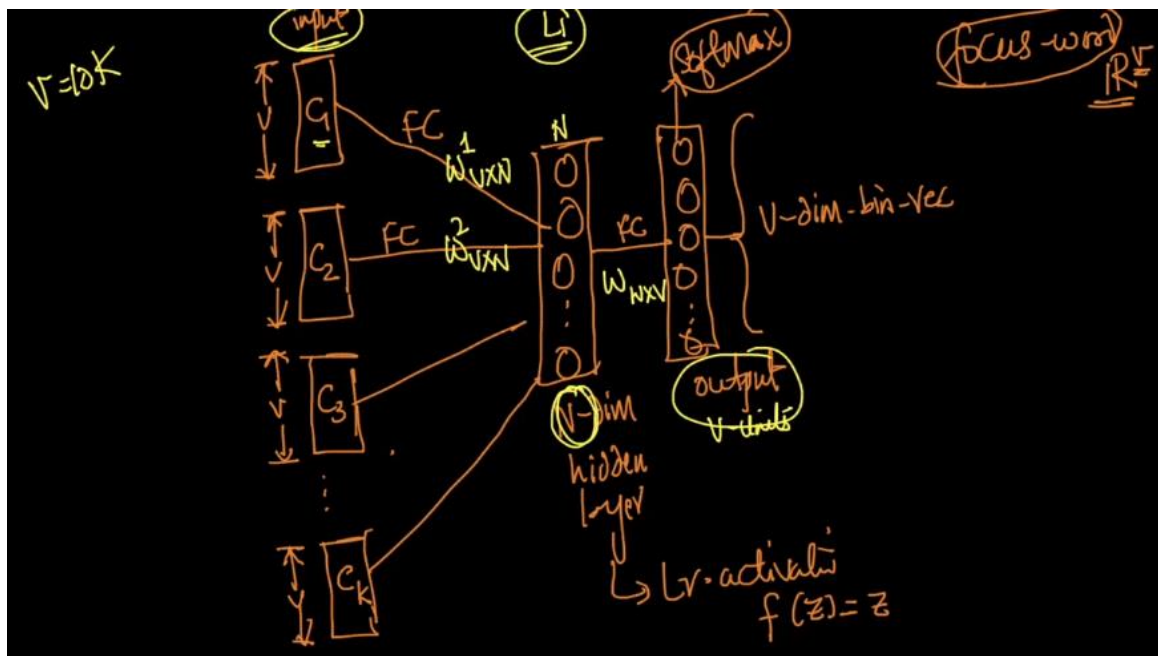 input
Li
softmax
focus-word
IR^V
V=10K
V
C1
FC
W^1 VXN
N
V
C2
FC
W^2 VXN
FC
W NXV
V-dim-bin-vec
V
C3
V-dim
hidden
layer
output
V-units
V
CK
Lr.activati
f(Z)=Z